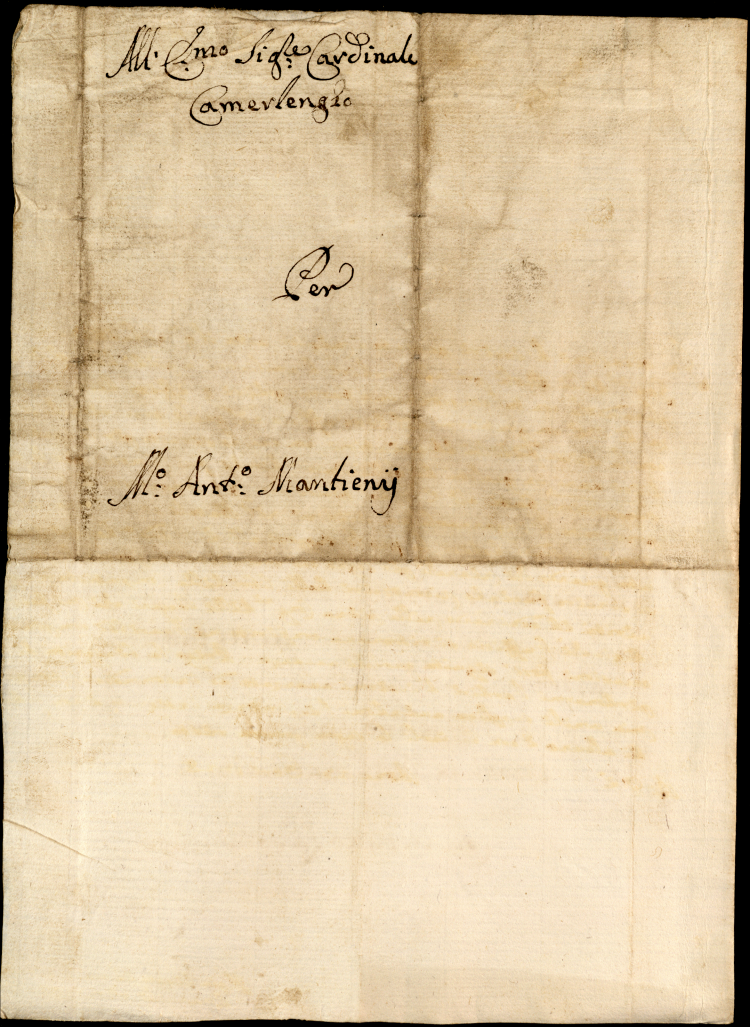 All' E:mo Sig:re Cardinale
Camerlengho
Per
M:o Ant:o Mantienij